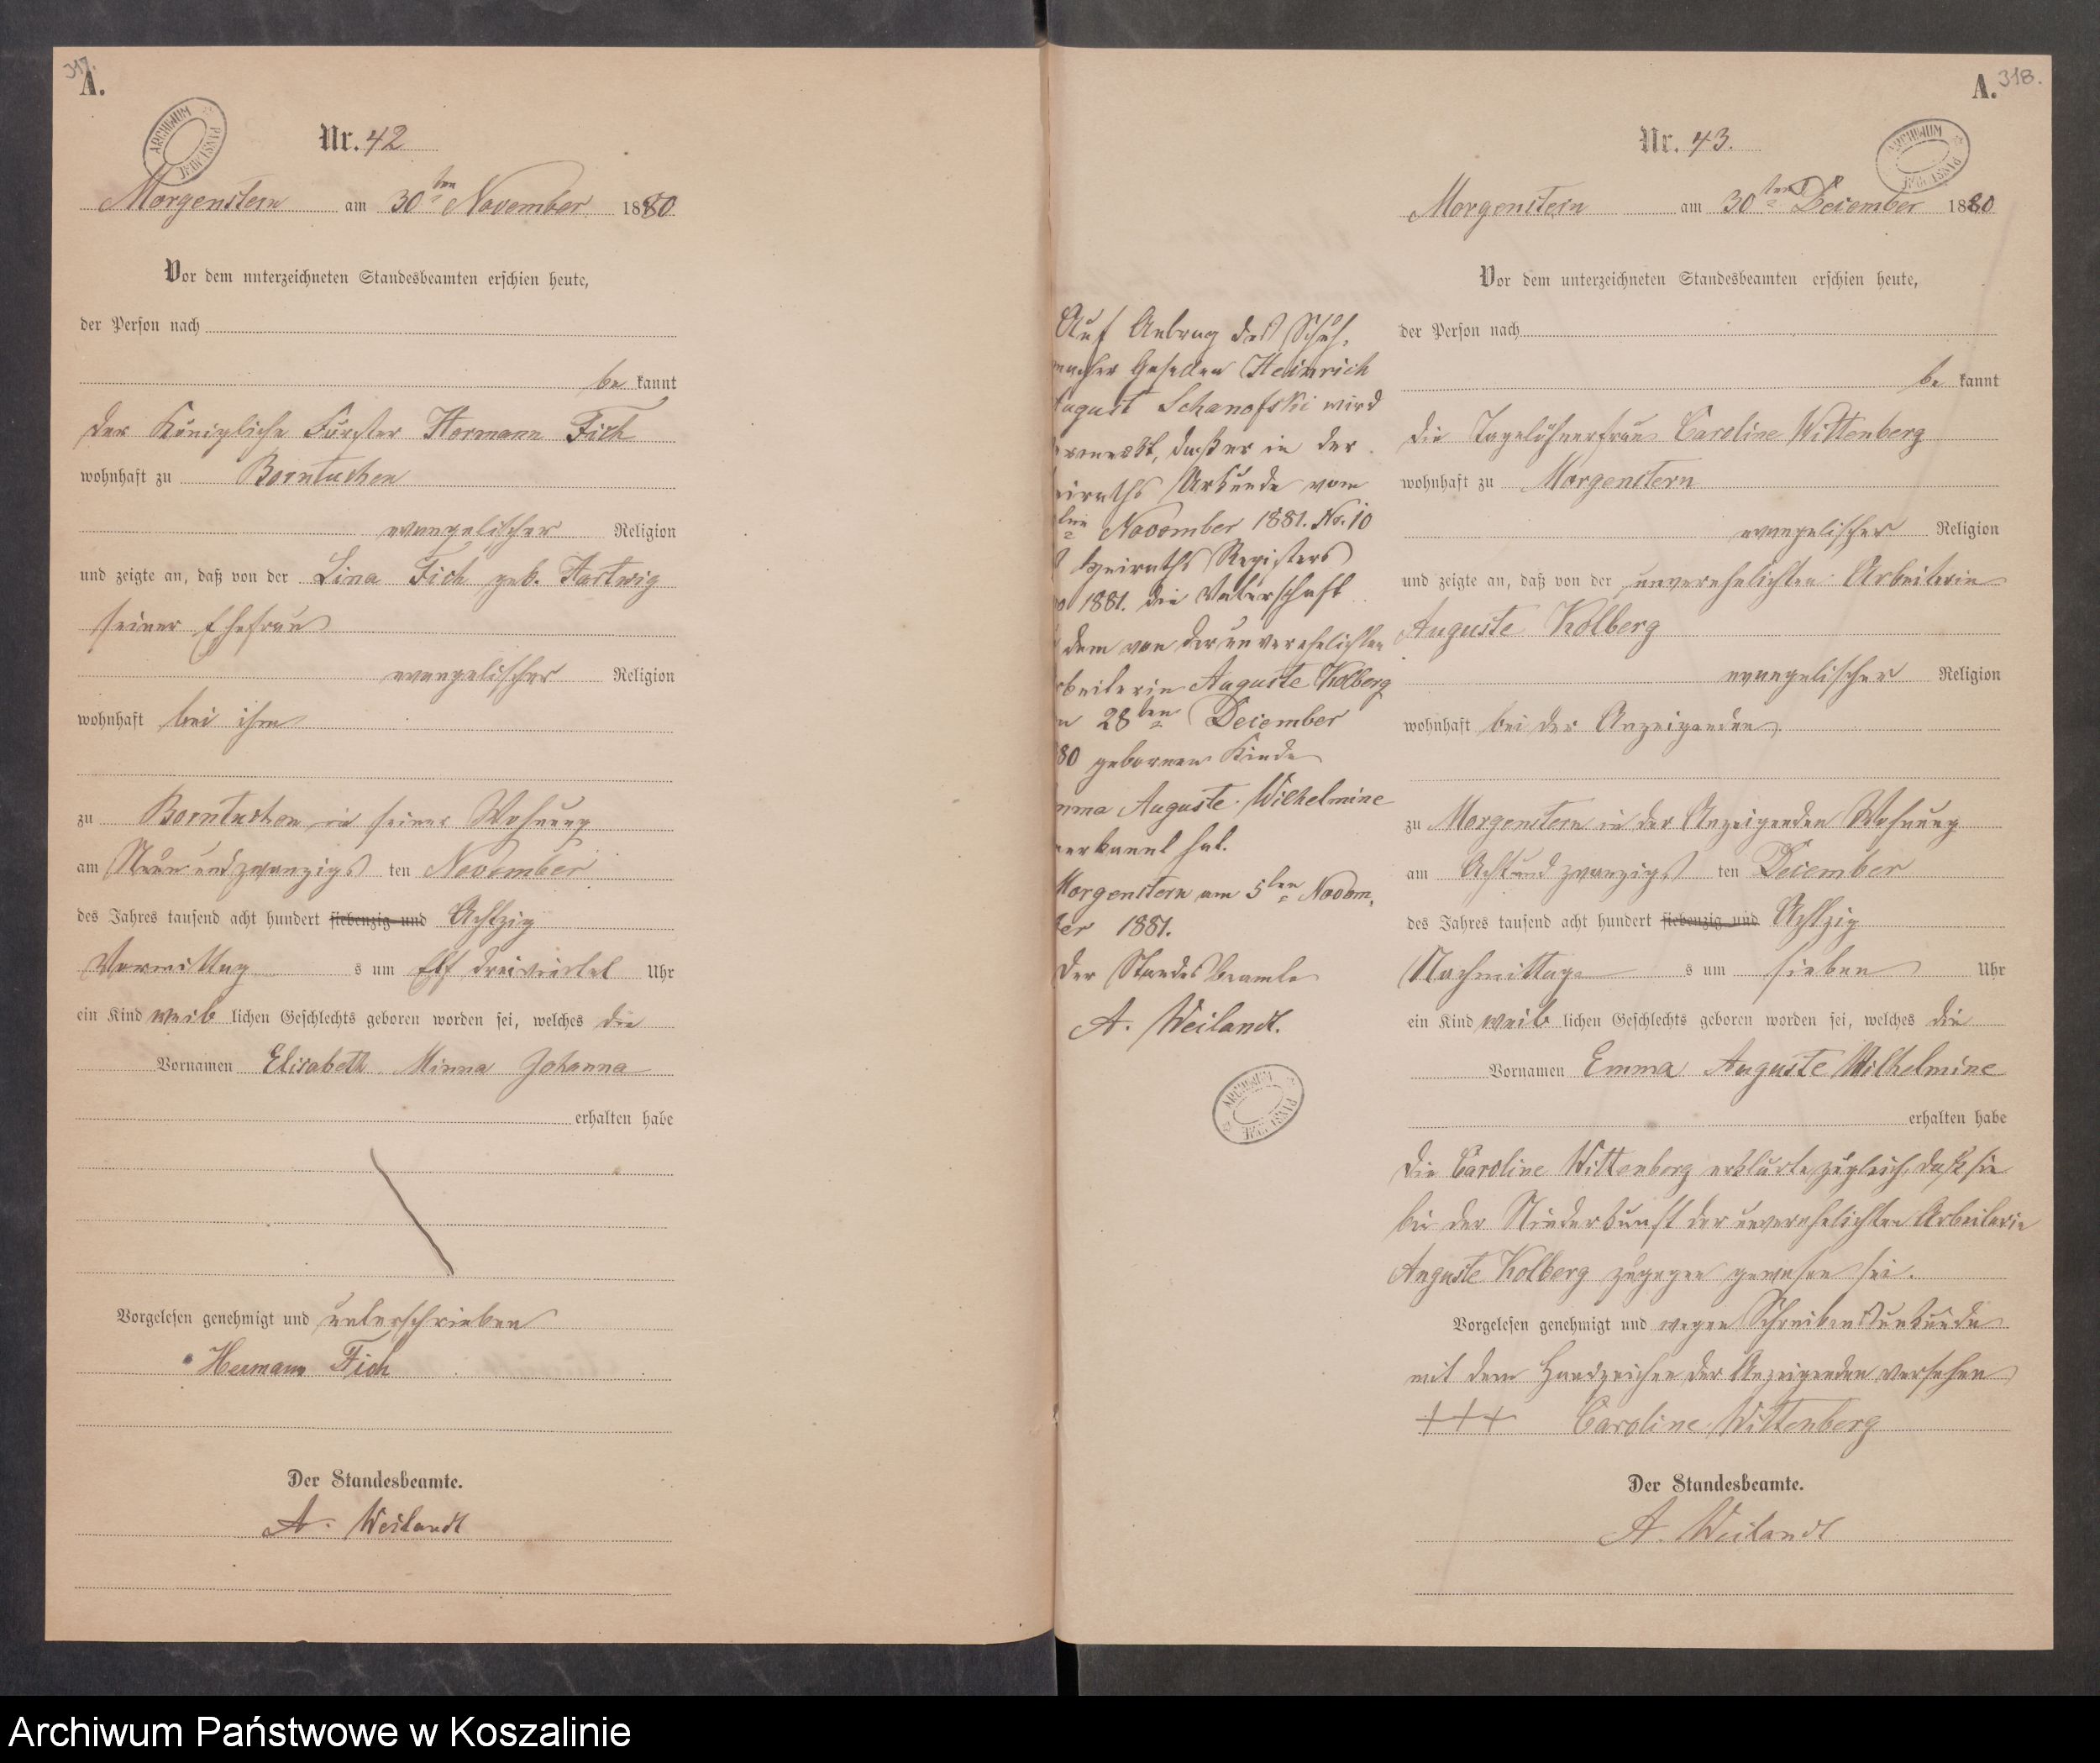 317.
A.
ARCHIWUM PAŃSTWOWE
Nr. 42
Morgenstern am 30ten November 1880
Vor dem unterzeichneten Standesbeamten erschien heute,
der Person nach
be kannt
der Königliche Förster Hermann Fick
wohnhaft zu Borntuchen
evangelischer Religion
und zeigte an, daß von der Lina Fick geb. Hartwig
seiner Ehefrau
evangelischer Religion
wohnhaft bei ihm
zu Borntuchen in seiner Wohnung
am Neun und zwanzigs ten November
des Jahres tausend acht hundert siebenzig und Achtzig
Vormittag s um Elf dreiviertel Uhr
ein Kind weib lichen Geschlechts geboren worden sei, welches die
Vornamen Elisabeth Minna Johanna
erhalten habe
Vorgelesen genehmigt und unterschrieben
Hermann Fick
Der Standesbeamte.
A. Weilandt
Auf Antrag des Schuh-
macher Gesellen Heinrich
August Schanofski wird
vermerkt, daß er in der
Heiraths Urkunde vom
November 1881. No. 10
Heiraths Registers
1881. die Vaterschaft
dem von der unverehelichten
Arbeiterin Auguste Kolberg
28ten December
80 geborenen Kinde
Emma Auguste Wilhelmine
anerkannt hat.
Morgenstern am 5ten Novem-
ber 1881.
Der Standesbeamte
A. Weilandt.
ARCHIWUM PAŃSTWOWE
A. 318.
ARCHIWUM PAŃSTWOWE
Nr. 43.
Morgenstern am 30ten December 1880
Vor dem unterzeichneten Standesbeamten erschien heute,
der Person nach
be kannt
die Tagelöhnerfrau Caroline Wittenberg
wohnhaft zu Morgenstern
evangelischer Religion
und zeigte an, daß von der unverehelichten Arbeiterin
Auguste Kolberg
evangelischer Religion
wohnhaft bei der Anzeigenden
zu Morgenstern in der Anzeigenden Wohnung
am Acht und zwanzigs ten December
des Jahres tausend acht hundert siebenzig und Achtzig
Nachmittag s um sieben Uhr
ein Kind weib lichen Geschlechts geboren worden sei, welches die
Vornamen Emma Auguste Wilhelmine
erhalten habe
Die Caroline Wittenberg erklärte zugleich, daß sie
bei der Niederkunft der unverehelichten Arbeiterin
Auguste Kolberg zugegen gewesen sei.
Vorgelesen genehmigt und wegen Schreibensunkunde
mit dem Handzeichen der Anzeigenden versehen
+++ Caroline Wittenberg
Der Standesbeamte.
A. Weilandt
Archiwum Państwowe w Koszalinie